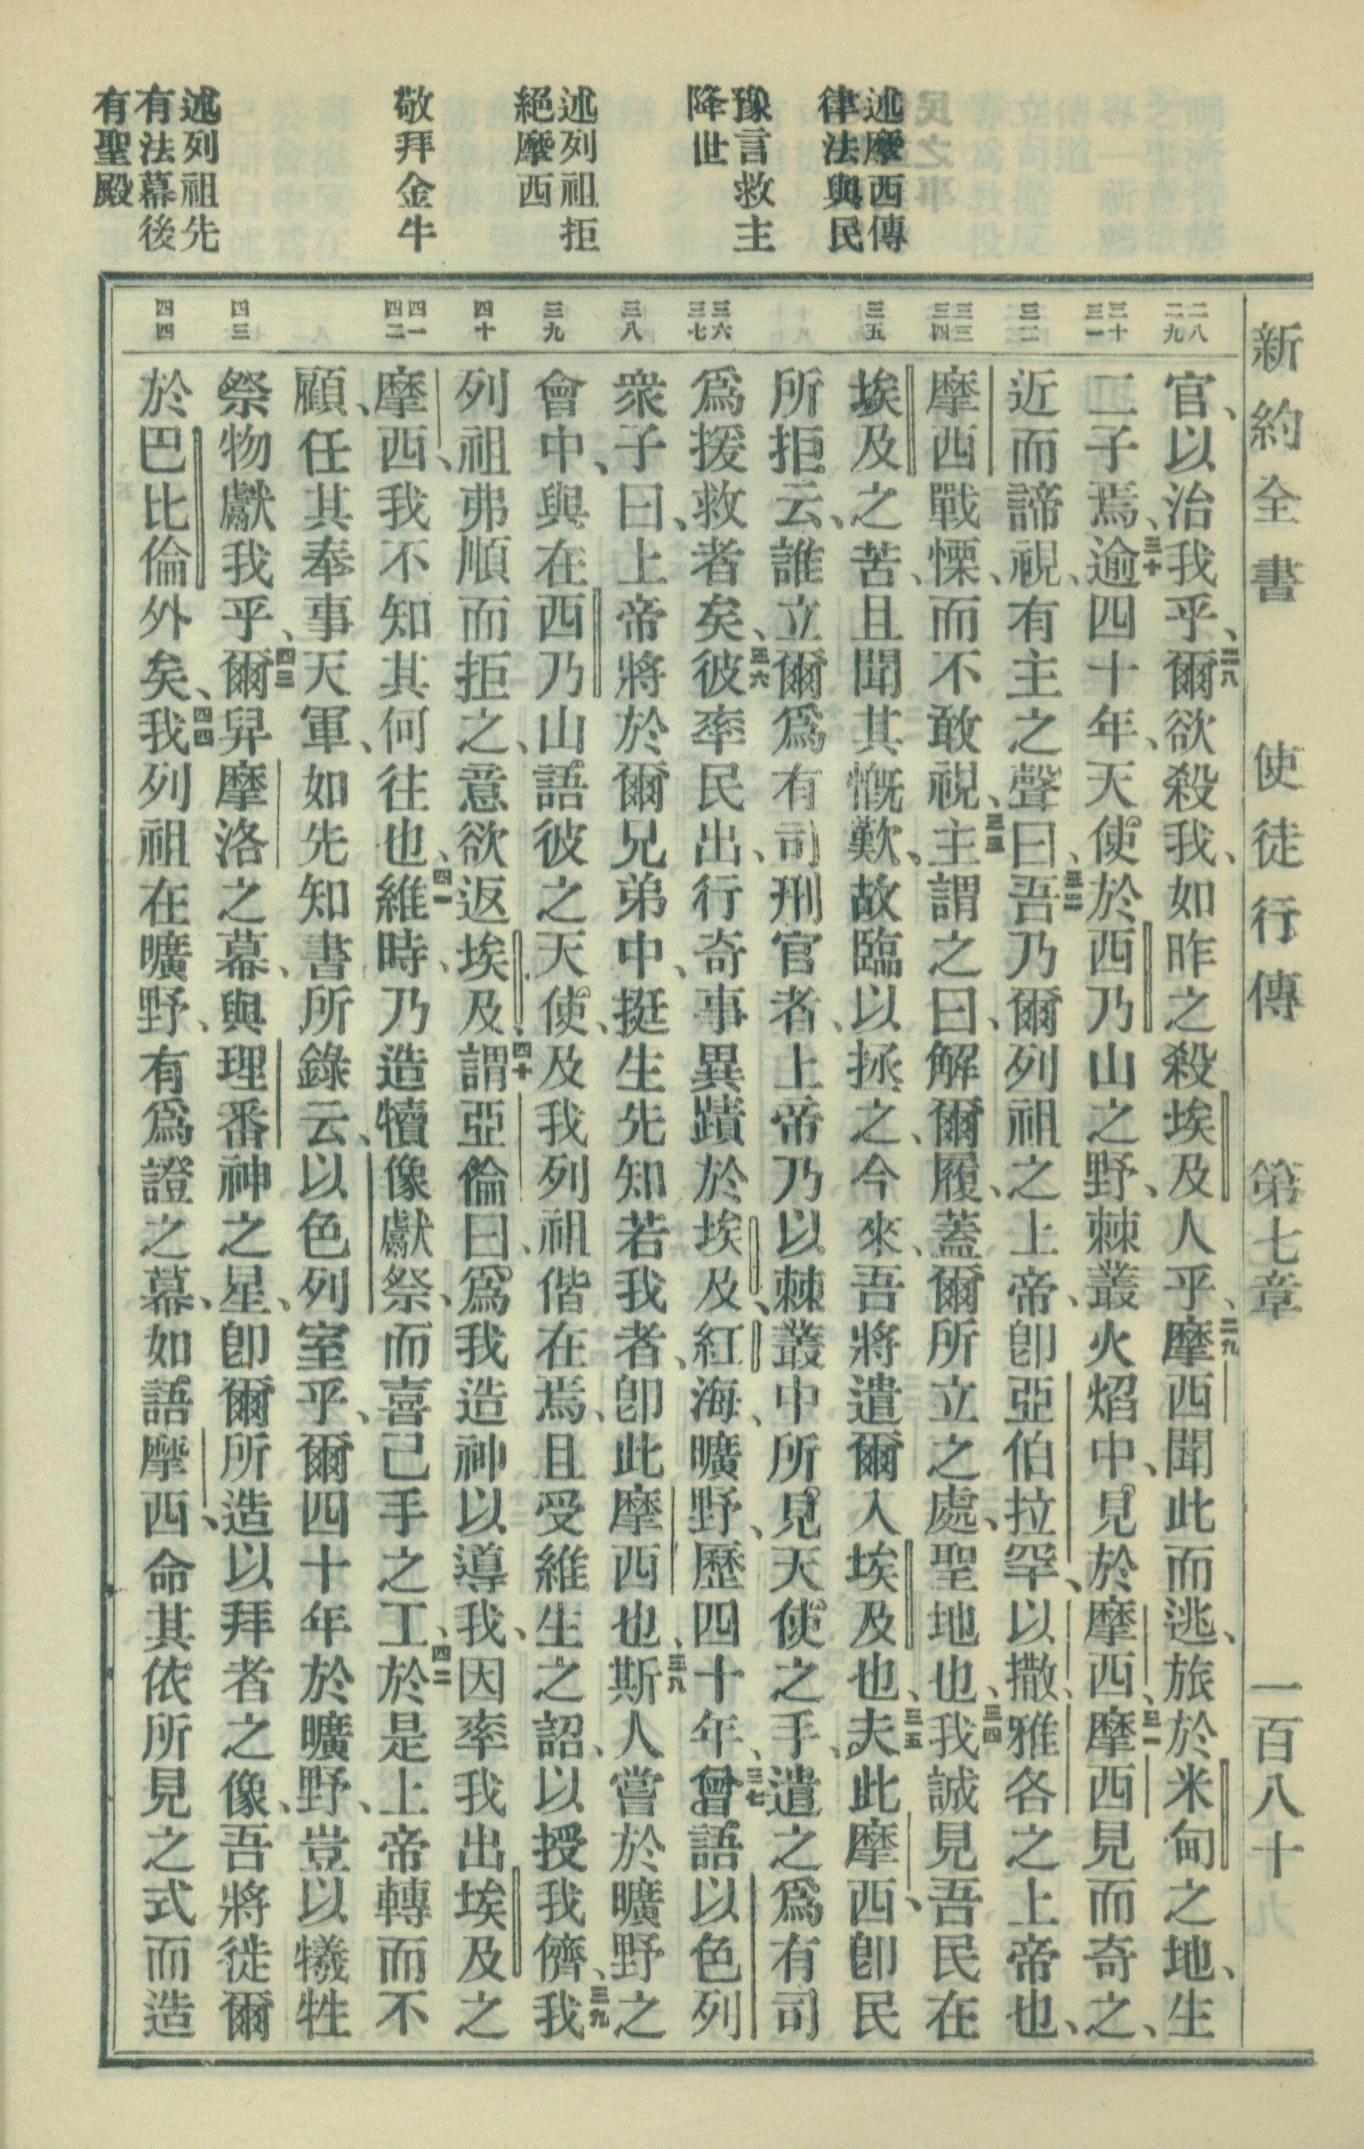 新約全書 使徒行傳 第七章 一百八十
述摩西傳
律法與民
豫言救主
降世
述列祖拒
絕摩西
敬拜金牛
述列祖先
有法幕後
有聖殿
二八 二九 三十 三一 三二 三三 三四 三五 三六 三七 三八 三九 四十 四一 四二 四三 四四
官、以治我乎、二八爾欲殺我、如昨之殺埃及人乎、二九摩西聞此而逃、旅於米甸之地、生
二子焉、三十逾四十年、天使於西乃山之野、棘叢火焰中、見於摩西、三一摩西見而奇之、
近而諦視、有主之聲曰、三二吾乃爾列祖之上帝、卽亞伯拉罕、以撒、雅各之上帝也、
摩西戰慄、而不敢視、三三主謂之曰、解爾履、蓋爾所立之處、聖地也、三四我誠見吾民在
埃及之苦、且聞其慨歎、故臨以拯之、今來、吾將遣爾入埃及也、三五夫此摩西、卽民
所拒云、誰立爾爲有司刑官者、上帝乃以棘叢中所見天使之手、遣之爲有司
爲援救者矣、三六彼率民出、行奇事異蹟於埃及、紅海、曠野、歷四十年、三七曾語以色列
衆子曰、上帝將於爾兄弟中、挺生先知若我者、卽此摩西也、三八斯人嘗於曠野之
會中、與在西乃山語彼之天使、及我列祖偕在焉、且受維生之詔、以授我儕、三九我
列祖弗順而拒之、意欲返埃及、四十謂亞倫曰、爲我造神以導我、因率我出埃及之
摩西、我不知其何往也、四一維時、乃造犢像獻祭、而喜己手之工、四二於是上帝轉而不
顧、任其奉事天軍、如先知書所錄云、以色列室乎、爾四十年於曠野、豈以犧牲
祭物獻我乎、四三爾舁摩洛之幕、與理番神之星、卽爾所造以拜者之像、吾將徙爾
於巴比倫外矣、四四我列祖在曠野、有爲證之幕、如語摩西、命其依所見之式而造